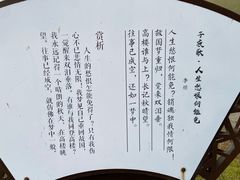 子夜歌·人生愁恨何能免
李煜
人生愁恨何能免?销魂独我情何限!
故国梦重归,觉来双泪垂。
高楼谁与上?长记秋晴望。
往事已成空,还如一梦中。
赏析
人生的愁恨怎能免得了?只有我伤
心不已悲情无限!我梦见自己重回故国,
一觉醒来双泪垂落。有谁与我同登高楼?
我永远记得一个晴朗的秋天,在高楼眺
望。往事已经成空,就仿佛在梦中一般。